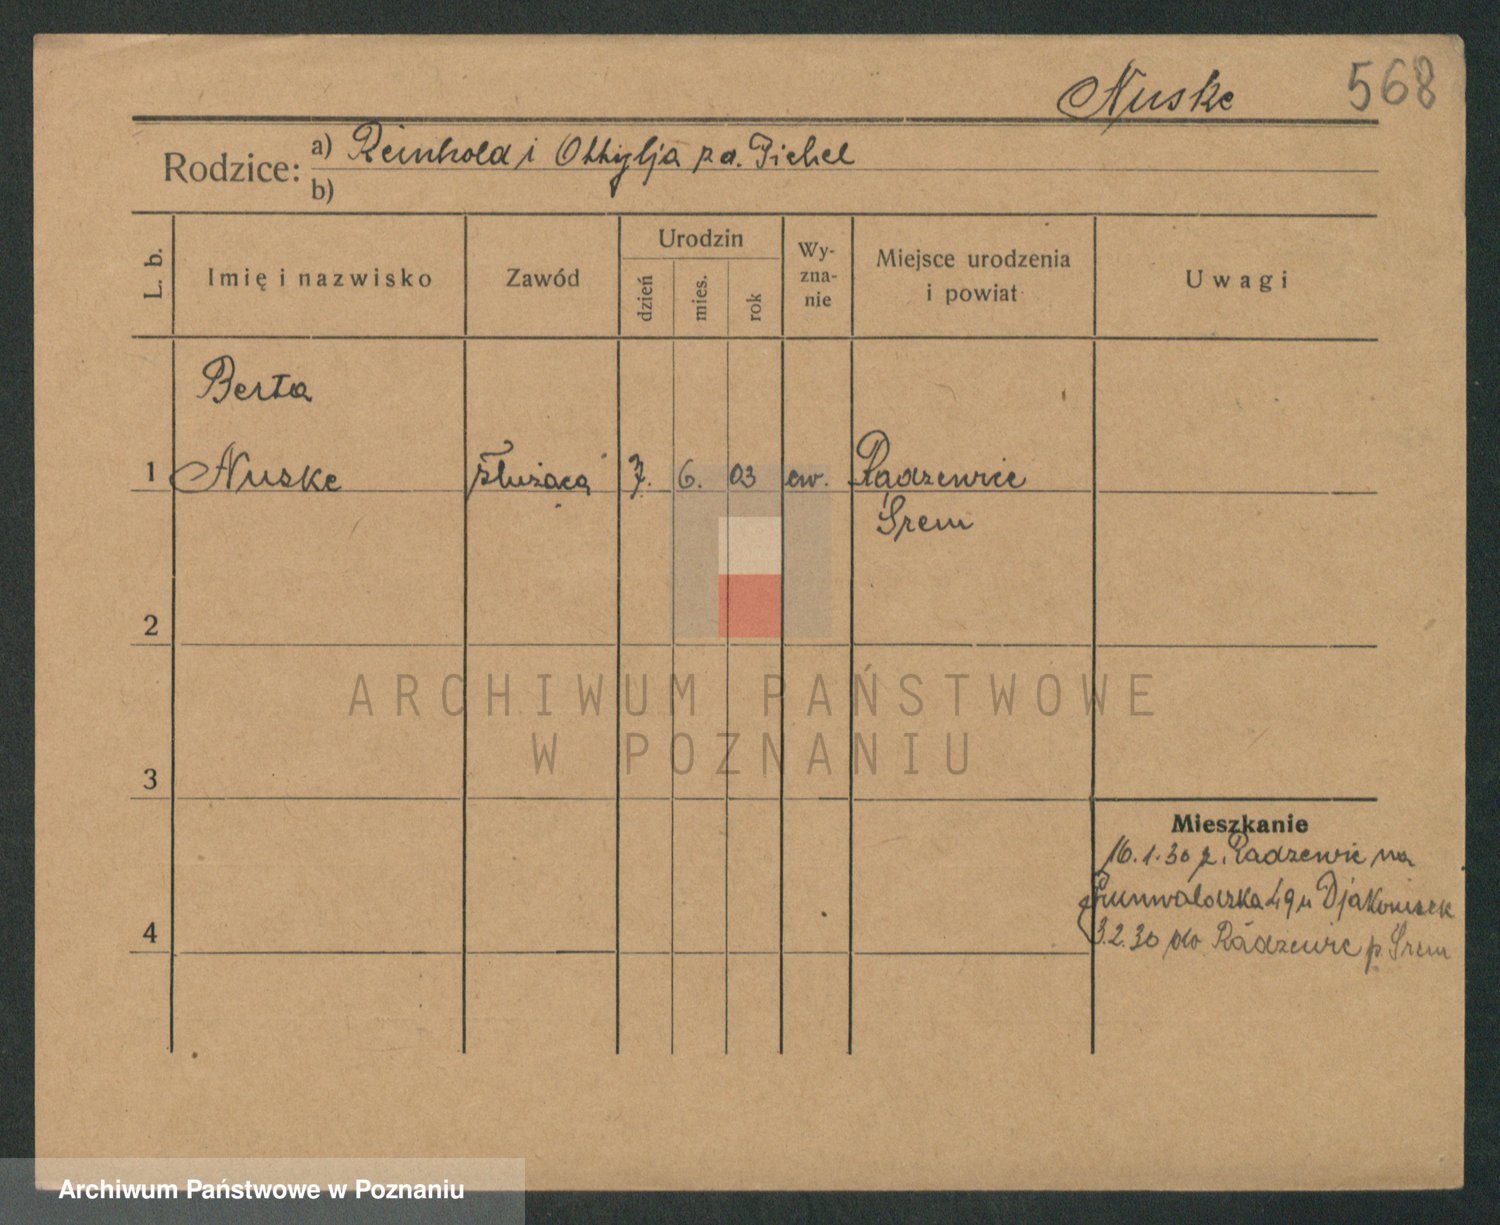 Nuske 568
Rodzice: a) Reinhold i Ottylja z d. Fichel
b)
L. b.
Imię i nazwisko
Zawód
Urodzin
dzień
mies.
rok
Wy-
zna-
nie
Miejsce urodzenia
i powiat
Uwagi
Berta
1 Nuske służąca 7. 6. 03 ew. Radzewice
Śrem
2
ARCHIWUM PAŃSTWOWE
W POZNANIU
3
Mieszkanie
16.1.30 z Radzewic na
Grunwaldzka 49 u Djakonisek
4 3.2.30 do Radzewic p. Śrem
Archiwum Państwowe w Poznaniu